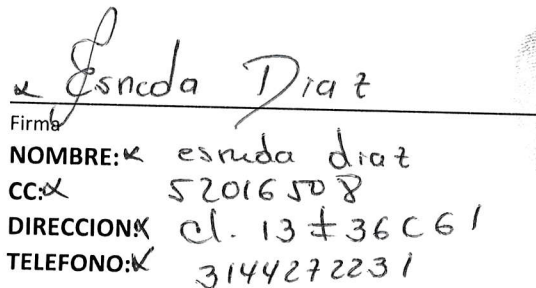 x Esneda Diaz
Firma
NOMBRE:x esneda diaz
CC:x 52016508
DIRECCION:x cl. 13 # 36 C 61
TELEFONO:x 3144272231